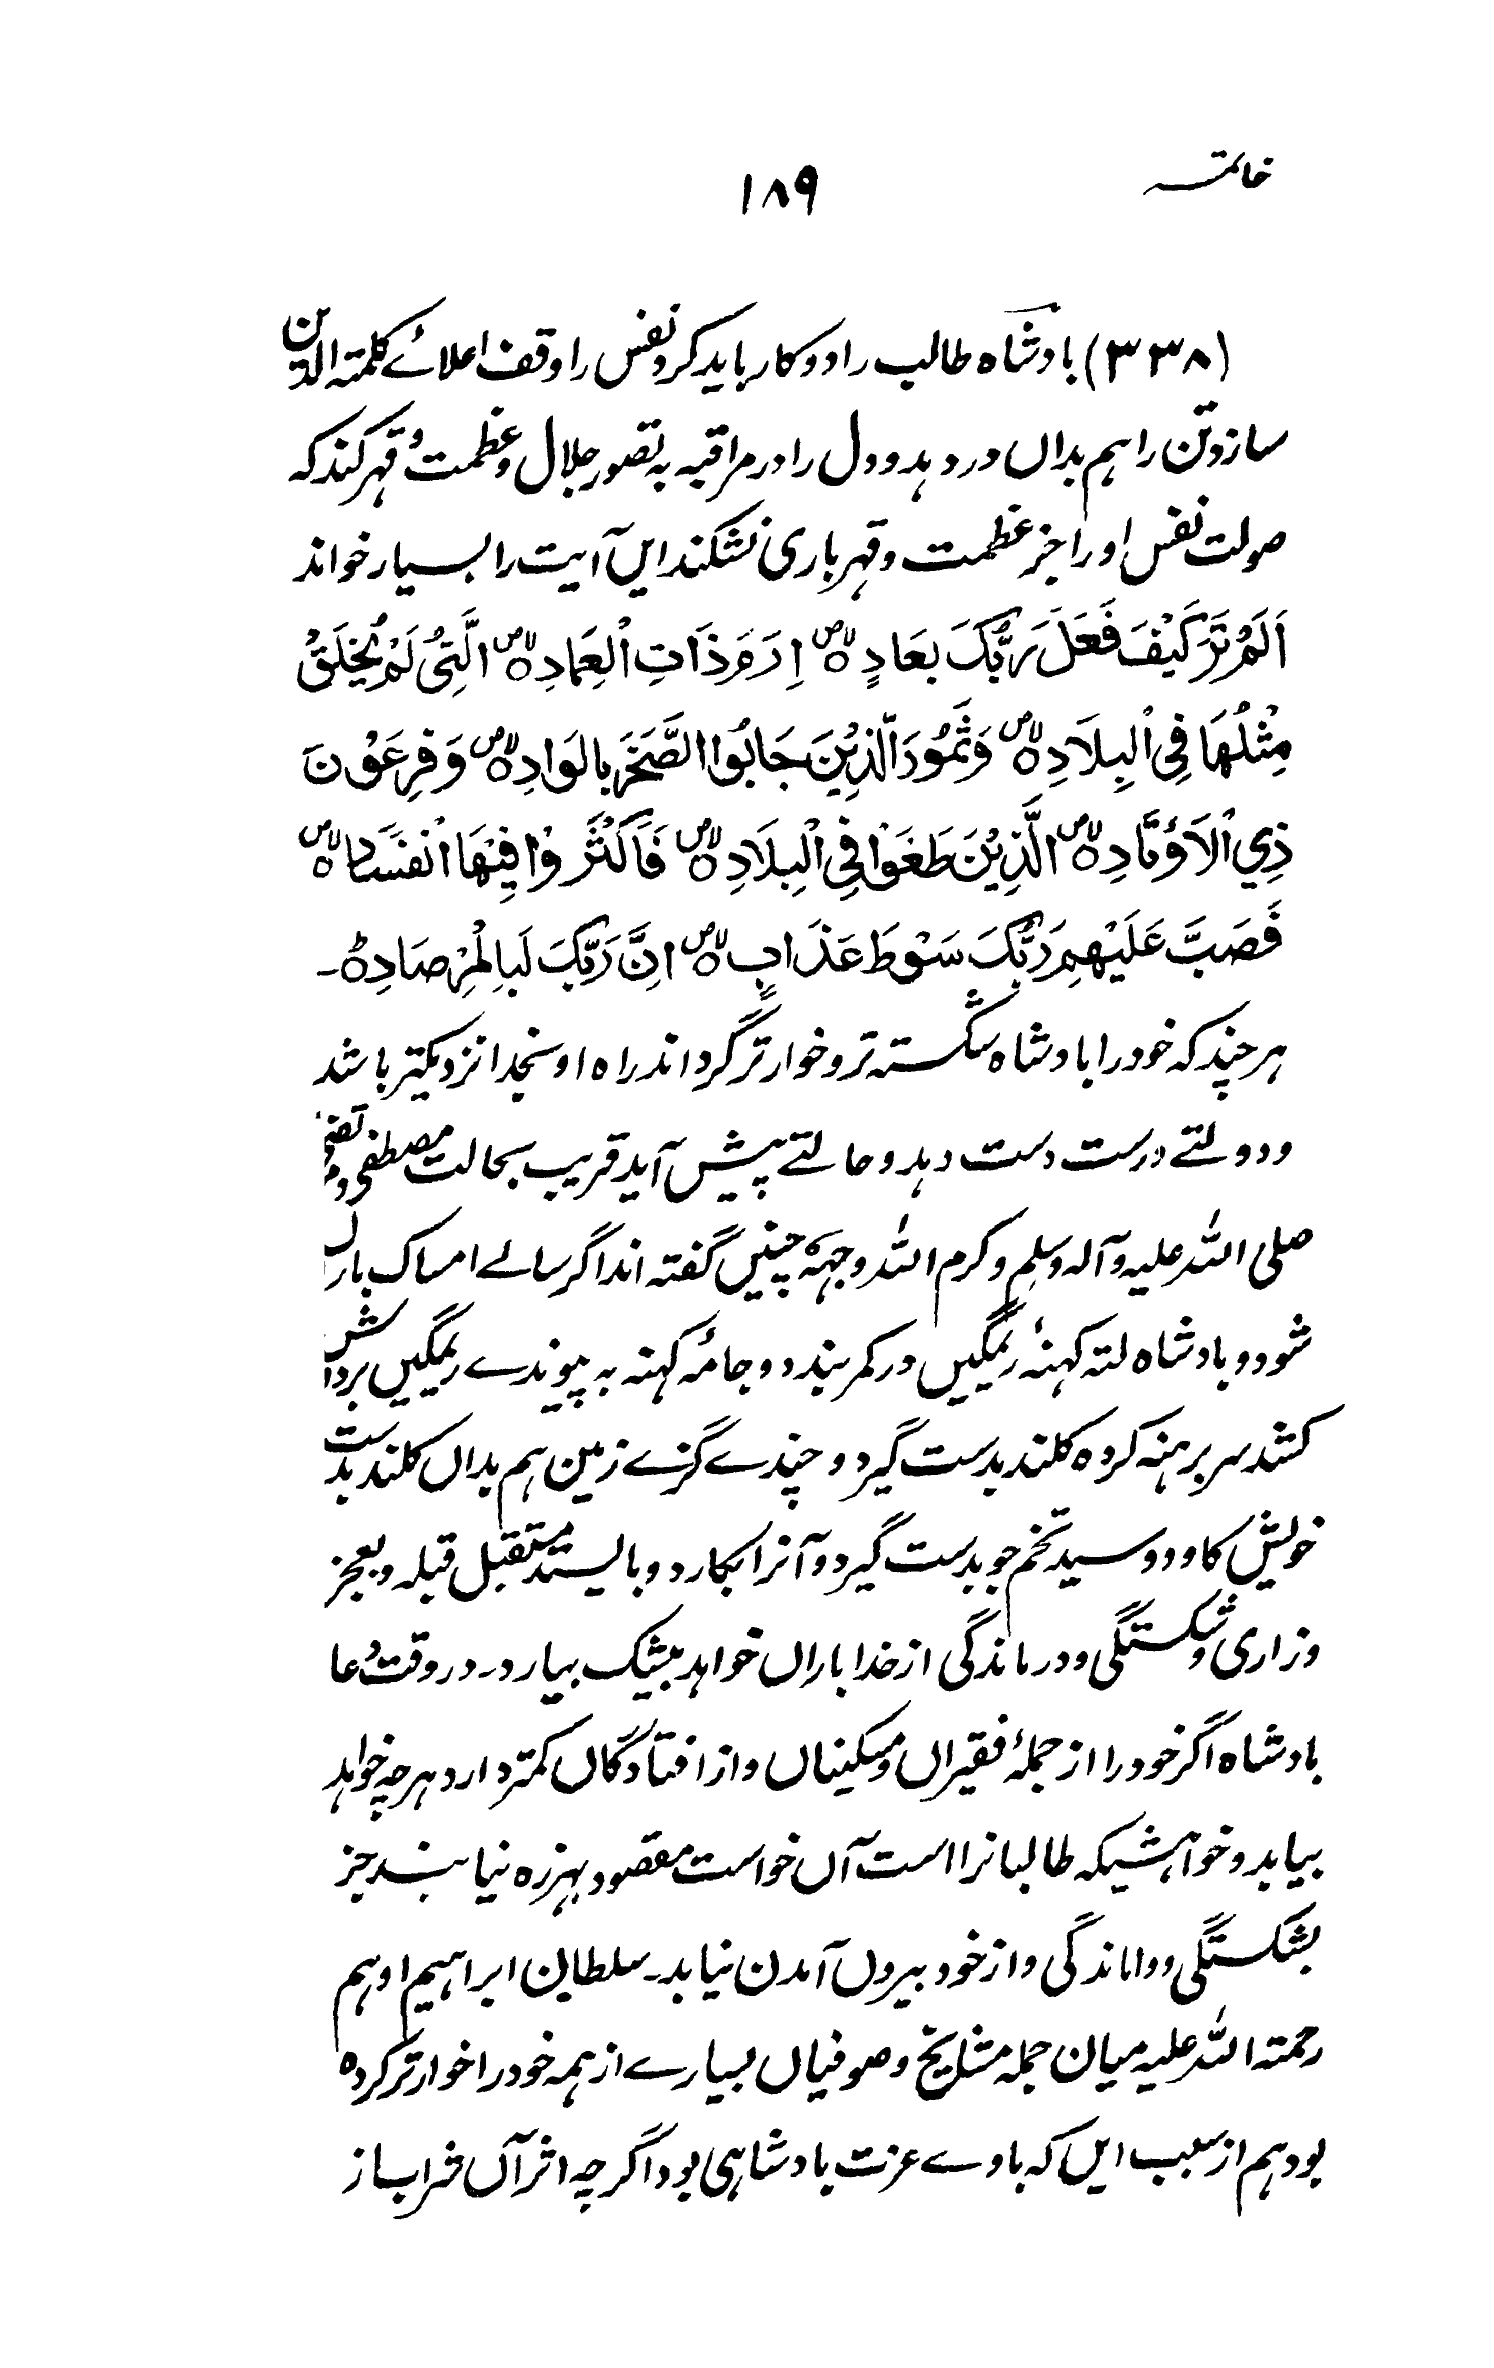 خاتمہ
۱۸۹
(۳۳۸) بادشاہ طالب را دو کار باید کرد نفس را وقف اعلائے کلمتہ الدین
سازد تن را ہم بداں در دہد و دل را در مراقبہ بہ تصور جلال و عظمت و قہر کند کہ
صولت نفس اورا جز عظمت و قہر باری نشکند ایں آیت را بسیار خواند
اَلَمْ تَرَ كَيْفَ فَعَلَ رَبُّكَ بِعَادٍ ۝ اِرَمَ ذَاتِ الْعِمَادِ ۝ الَّتِيْ لَمْ يُخْلَقْ
مِثْلُهَا فِي الْبِلَادِ ۝ وَثَمُوْدَ الَّذِيْنَ جَابُوا الصَّخْرَ بِالْوَادِ ۝ وَفِرْعَوْنَ
ذِي الْاَوْتَادِ ۝ الَّذِيْنَ طَغَوْا فِي الْبِلَادِ ۝ فَاَكْثَرُوْا فِيْهَا الْفَسَادَ ۝
فَصَبَّ عَلَيْهِمْ رَبُّكَ سَوْطَ عَذَابٍ ۝ اِنَّ رَبَّكَ لَبِالْمِرْصَادِ ۝ ۔
ہر چند کہ خود را بادشاہ شکستہ تر و خوار تر گرداند راہ او بخدا نزدیکتر باشد
و دولتے درست دست دہد و حالتے پیش آید قریب بحالت مصطفی و مرتضی
صلی اللہ علیہ و آلہ وسلم و کرم اللہ وجہہ چنیں گفتہ اند اگر سالے امساک باراں
شود و بادشاہ لتہ کہنہ ریمگیں در کمر بندد و جامۂ کہنہ بہ پیوندے ریمگیں بردوش
کشد سر برہنہ کردہ کلند بدست گیرد و چندے گزے زمین ہم بداں کلند بدست
خویش کاود و سید تخم جو بدست گیرد و آنرا بکارد و بایستد مستقبل قبلہ و بعجز
و زاری و شکستگی و درماندگی از خدا باراں خواہد بیشک ببارد۔ در وقت دعا
بادشاہ اگر خود را از جملۂ فقیراں و مسکیناں و از افتادگاں کمتر دارد ہرچہ خواہد
بیابد و خواہشیکہ طالبانرا است آں خواست مقصود بہرزہ نیابند جز
بشکستگی و واماندگی و از خود بیروں آمدن نیابد۔ سلطان ابراہیم اوہم
رحمتہ اللہ علیہ میان جملہ مشایخ و صوفیاں بسیارے از ہمہ خود را خوار تر کردہ
بود ہم از سبب ایں کہ باوے عزت بادشاہی بود اگرچہ اثر آں خراب از